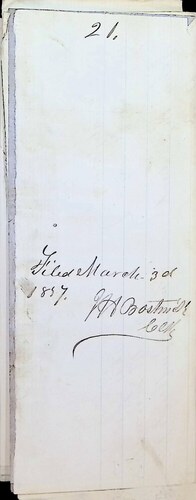 21.
Filed March 3d
1857.
J H Bostwick
Clk